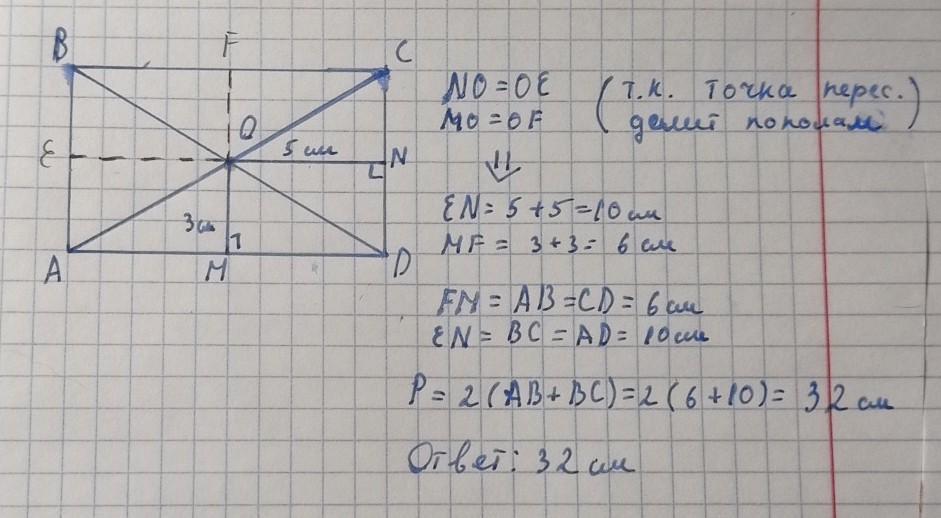 B F C
E O 5 см N
3 см
A M D
NO = OE (т.к. точка перес.)
MO = OF (делит пополам)
⇓
EN = 5 + 5 = 10 см
MF = 3 + 3 = 6 см
FM = AB = CD = 6 см
EN = BC = AD = 10 см
P = 2 (AB + BC) = 2 (6 + 10) = 32 см
Ответ: 32 см